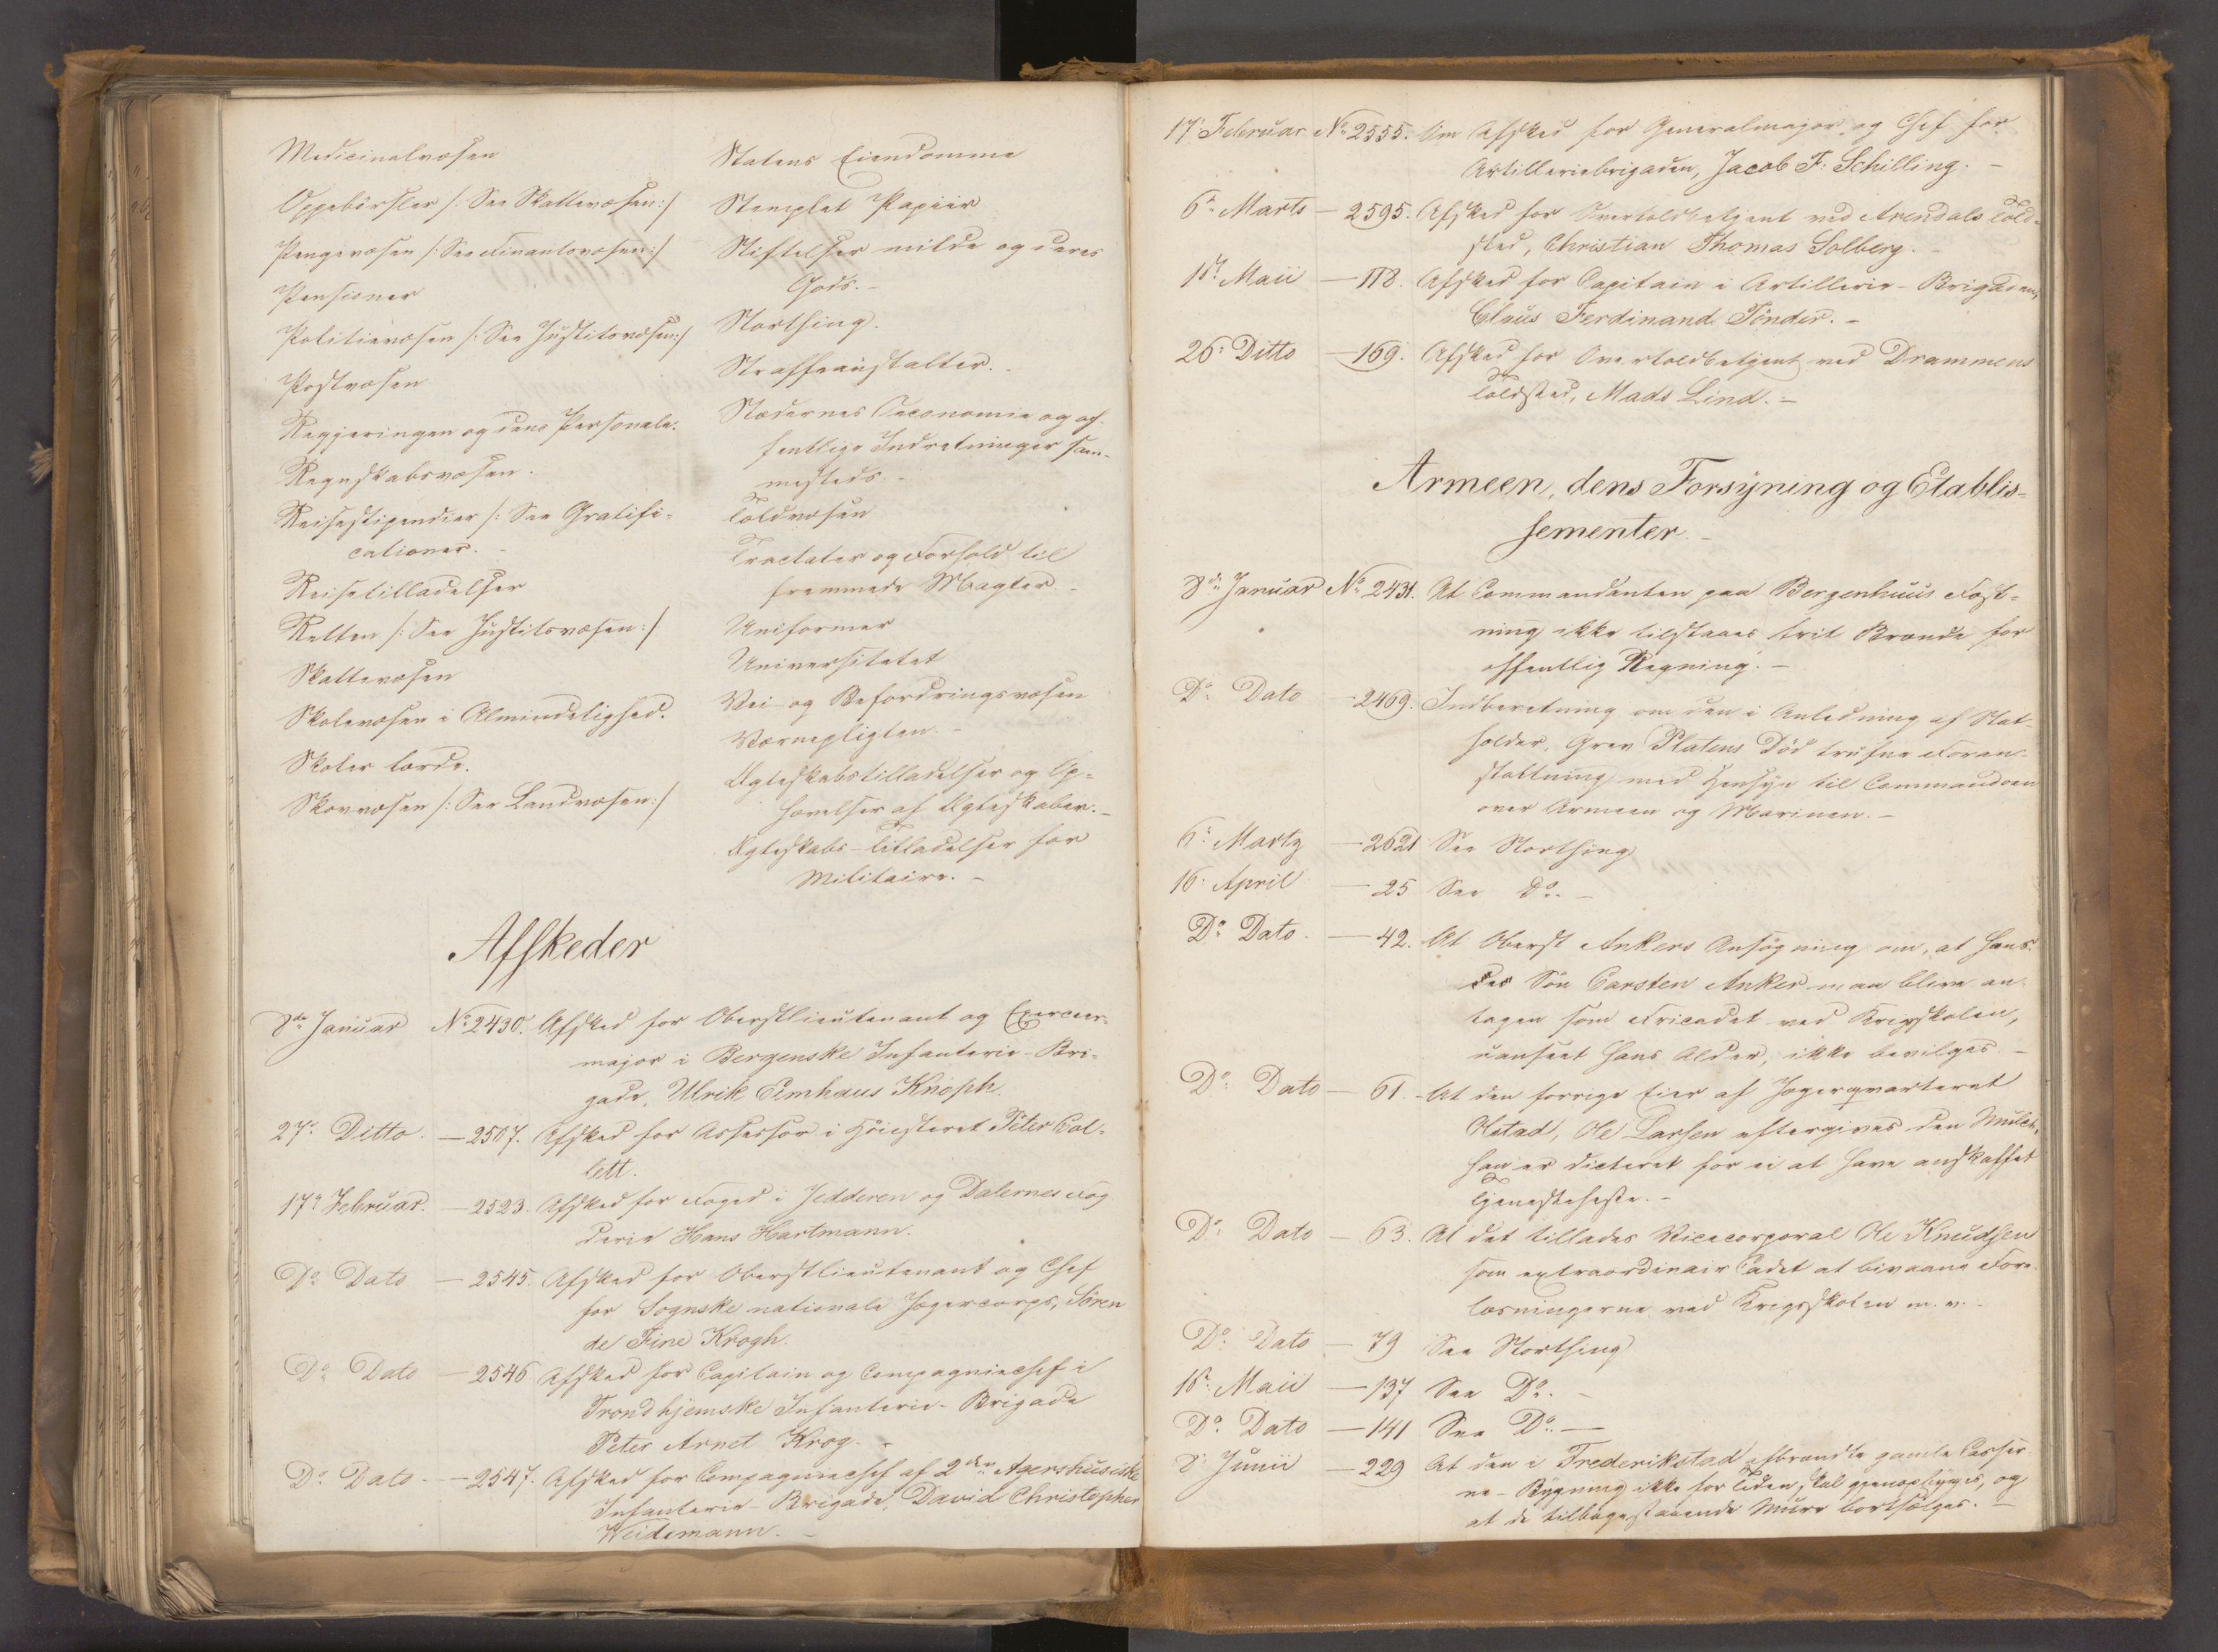 Medicinalvæsen
Oppebørsler /: See Skattevæsen :/
Pengevæsen /: See Finantsvæsen :/
Pensioner
Politievæsen /: See Justitsvæsen :/
Postvæsen
Regjeringen og dens Personale.
Regnskabsvæsen.
Reisestipendier /: See Gratifi-
cationer.
Reisetilladelser
Retten /: See Justitsvæsen :/
Skattevæsen
Skolevæsen i Almindelighed.
Skoler lærde.
Skovvæsen /: See Landvæsen :/
Statens Eiendomme
Stemplet Papiir
Stiftelser milde og deres
Gods. -
Storthing.
Straffeanstalter. -
Stædernes Oeconomie og of-
fentlige Indretninger sam-
mesteds. -
Toldvæsen
Tractater og Forhold til
fremmede Magter. -
Uniformer
Universitetet
Vei- og Befordringsvæsen
Værnepligten. -
Ægteskabstilladelser og Op-
hævelser af Ægteskaber. -
Ægteskabs-tilladelser for
Militaire. -
Afskeder
8de Januar No 2430. Afsked for Oberstlieutenant og Exerceer-
major i Bergenske Infanterie-Bri-
gade, Ulrik Elmhaus Knoph.
27. Ditto. - 2507. Afsked for Assessor i Höiesteret Peter Col-
lett.
17. Februar. - 2523. Afsked for Foged i Jedderen og Dalernes Fog-
derie Hans Hartmann.
Do Dato - 2545. Afsked for Oberstlieutenant og Chef
for Sognske nationale Jægercorps, Sören
de Fine Krogh.
Do Dato - 2546 Afsked for Capitain og Compagniechef i
Trondhjemske Infanterie-Brigade
Peter Arnet Krog. -
Do Dato - 2547. Afsked for Compagniechef af 2den Agershusiske
Infanterie-Brigade, David Christopher
Weidemann. -
17. Februar No 2555. Om Afsked for Generalmajor og Chef for
Artilleriebrigaden, Jacob F. Schilling. -
6. Marts - 2595. Afsked for Overtoldbetjent ved Arendals Told-
sted, Christian Thomas Solberg. -
18. Maii - 118. Afsked for Capitain i Artillerie-Brigaden,
Claus Ferdinand Tönder. -
26. Ditto - 169. Afsked for Overtoldbetjent ved Drammens
Toldsted, Mads Lind. -
Armeen, dens Forsÿning og Etablis-
sementer. -
8de Januar No 2431. At Commandanten paa Bergenhuus Fæst-
ning ikke tilstaaes frit Brænde for
offentlig Regning. -
Do Dato - 2469. Indberetning om den i Anledning af Stat-
holder, Grev Platens Död trufne Foran-
staltning med Hensyn til Commandoen
over Armeen og Marinen. -
6. Marty - 2621 See Storthing
16. April - 25 See Do. -
Do Dato. - 42. At Oberst Ankers Ansøgning om, at hans
Sön Carsten Anker maa blive an-
tagen som Fricadet ved Krigsskolen,
uanseet hans Alder, ikke bevilges. -
Do Dato - 61. At den forrige Eier af Jægerqvarteret
Olstad, Ole Larsen eftergives den Mulct,
han er dicteret for ei at have anskaffet
Tjenesteheste. -
Do Dato - 63. At det tillades Vicecorporal Ole Knudsen
som extraordinair Cadet at bivaane Fore-
læsningerne ved Krigsskolen m. v. -
Do Dato - 79 See Storthing
18. Maii - 137 See Do. -
Do Dato - 141 See Do. -
8. Junii - 229 At den i Frederikstad afbrændte gamle Caser-
ne-Bygning ikke for Tiden skal gjenopbÿges, og
at de tilbagestaaende Mure bortsælges. -